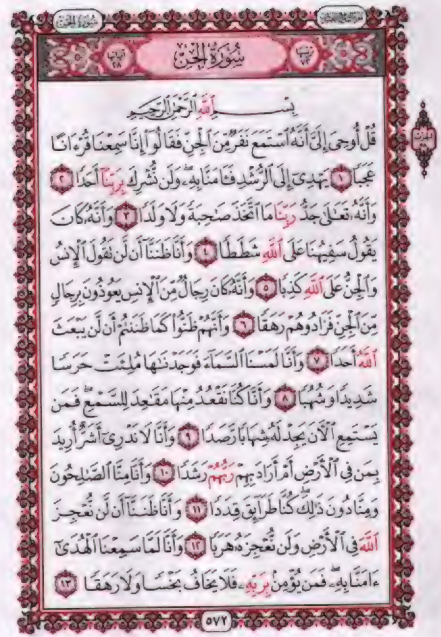 سُورَةُ الجِنِّ
بِسْمِ اللَّهِ الرَّحْمَٰنِ الرَّحِيمِ
قُلْ أُوحِىَ إِلَىَّ أَنَّهُ ٱسْتَمَعَ نَفَرٌ مِّنَ ٱلْجِنِّ فَقَالُوٓا۟ إِنَّا سَمِعْنَا قُرْءَانًا
عَجَبًا ١ يَهْدِىٓ إِلَى ٱلرُّشْدِ فَـَٔامَنَّا بِهِۦ وَلَن نُّشْرِكَ بِرَبِّنَآ أَحَدًا ٢
وَأَنَّهُۥ تَعَٰلَىٰ جَدُّ رَبِّنَا مَا ٱتَّخَذَ صَٰحِبَةً وَلَا وَلَدًا ٣ وَأَنَّهُۥ كَانَ
يَقُولُ سَفِيهُنَا عَلَى ٱللَّهِ شَطَطًا ٤ وَأَنَّا ظَنَنَّآ أَن لَّن تَقُولَ ٱلْإِنسُ
وَٱلْجِنُّ عَلَى ٱللَّهِ كَذِبًا ٥ وَأَنَّهُۥ كَانَ رِجَالٌ مِّنَ ٱلْإِنسِ يَعُوذُونَ بِرِجَالٍ
مِّنَ ٱلْجِنِّ فَزَادُوهُمْ رَهَقًا ٦ وَأَنَّهُمْ ظَنُّوا۟ كَمَا ظَنَنتُمْ أَن لَّن يَبْعَثَ
ٱللَّهُ أَحَدًا ٧ وَأَنَّا لَمَسْنَا ٱلسَّمَآءَ فَوَجَدْنَٰهَا مُلِئَتْ حَرَسًا
شَدِيدًا وَشُهُبًا ٨ وَأَنَّا كُنَّا نَقْعُدُ مِنْهَا مَقَٰعِدَ لِلسَّمْعِ فَمَن
يَسْتَمِعِ ٱلْـَٔانَ يَجِدْ لَهُۥ شِهَابًا رَّصَدًا ٩ وَأَنَّا لَا نَدْرِىٓ أَشَرٌّ أُرِيدَ
بِمَن فِى ٱلْأَرْضِ أَمْ أَرَادَ بِهِمْ رَبُّهُمْ رَشَدًا ١٠ وَأَنَّا مِنَّا ٱلصَّٰلِحُونَ
وَمِنَّا دُونَ ذَٰلِكَ كُنَّا طَرَآئِقَ قِدَدًا ١١ وَأَنَّا ظَنَنَّآ أَن لَّن نُّعْجِزَ
ٱللَّهَ فِى ٱلْأَرْضِ وَلَن نُّعْجِزَهُۥ هَرَبًا ١٢ وَأَنَّا لَمَّا سَمِعْنَا ٱلْهُدَىٰٓ
ءَامَنَّا بِهِۦ فَمَن يُؤْمِنۢ بِرَبِّهِۦ فَلَا يَخَافُ بَخْسًا وَلَا رَهَقًا ١٣
٥٧٢